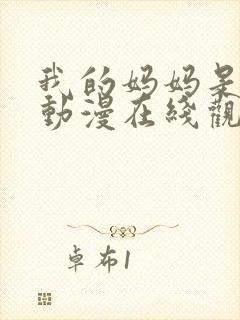 我的妈妈是
動漫在綫觀
卓布1